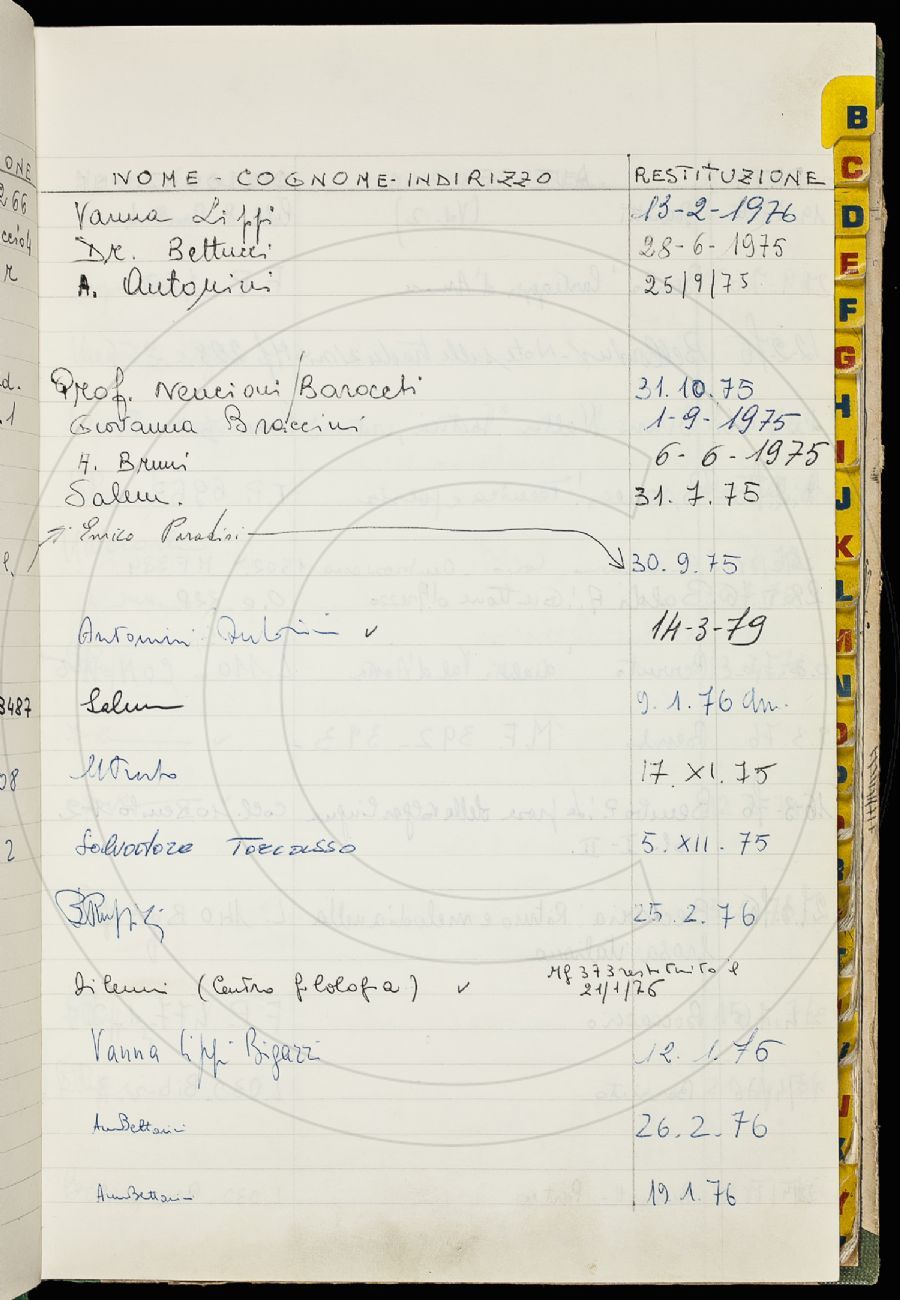 ONE NOME - COGNOME - INDIRIZZO RESTITUZIONE
266 Vanna Lippi 13-2-1976
Dr. Bettucci 28-6-1975
A. Antonini 25/9/75
d. Prof. Nencioni / Barocchi 31.10.75
.1 Giovanna Braccini 1-9-1975
A. Bruni 6-6-1975
Salem. 31.7.75
Enrico Paradisi
30.9.75
Antonini Antonini ✓ 14-3-79
3487 Salem 9.1.76
08 17.XI.75
2 Salvatore 5.XII.75
25.2.76
(Centro filologia) ✓ MF 373 restituito il
21/1/76
Vanna Lippi Bigazzi 12.1.76
Ann Bettarini 26.2.76
Ann Bettarini 19.1.76
B
C
D
E
F
G
H
I
J
K
L
M
N
O
P
Y